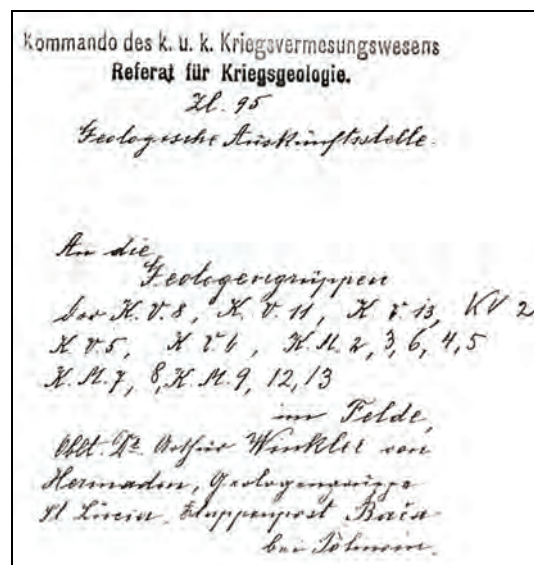 Kommando des k. u. k. Kriegsvermesungswesens
Referat für Kriegsgeologie.
Zl. 95
Geologische Auskunftsstelle.
An die
Geologengruppen
der K.V. 8, K.V. 11, K.V. 13, KV 2
K.V. 5, K.V. 6, K.M. 2, 3, 6, 4, 5
K.M. 7, 8, K.M. 9, 12, 13
im Felde,
Oblt. Dr. Arthur Winkler von
Hermaden, Geologengruppe
St Lucia Etappenpost Bača
bei Tolmein.